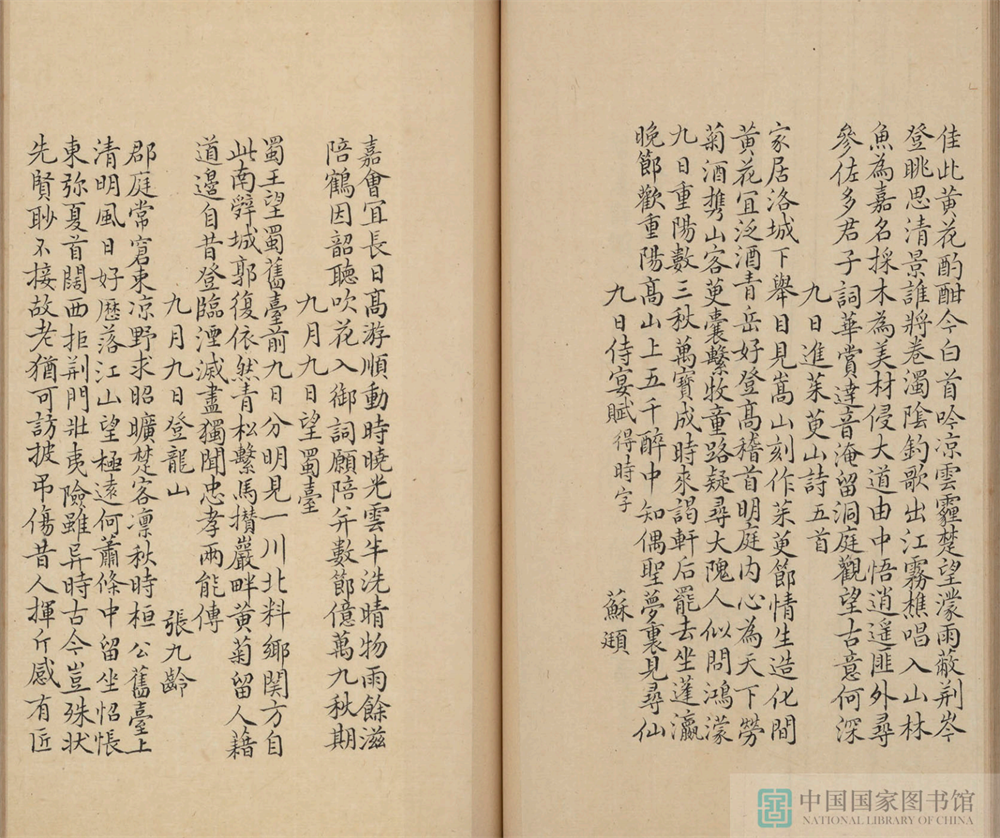 佳此黄花酌酣今白首吟凉雲霾楚望濛雨蔽荆岑
登眺思清景誰將卷濁陰釣歌出江霧樵唱入山林
魚為嘉名採木為美材侵大道由中悟逍遥匪外尋
參佐多君子詞華賞達音淹留洞庭觀望古意何深
九日進茱萸山詩五首
家居洛城下舉目見嵩山刻作茱萸節情生造化間
黄花宜泛酒青岳好登高稽首明庭内心為天下勞
菊酒携山客萸囊繫牧童路疑尋大隗人似問鴻濛
九日重陽數三秋萬寶成時來謁軒后罷去坐蓬瀛
晚節歡重陽高山上五千醉中知偶聖夢裏見尋仙
九日侍宴賦得時字 蘇頲
嘉會宜長日高游順動時曉光雲半洗晴物雨餘滋
陪鶴因韶聽吹花入御詞願陪并數節億萬九秋期
九月九日望蜀臺
蜀王望蜀舊臺前九日分明見一川北料鄉関方自
此南辭城郭復依然青松繫馬攅巖畔黄菊留人籍
道邊自昔登臨湮滅盡獨聞忠孝兩能傳
九月九日登龍山 張九齡
郡庭常窘束凉野求昭曠楚客凛秋時桓公舊臺上
清明風日好歷落江山望極遠何蕭條中留坐怊悵
東弥夏首闊西拒荆門壯夷險雖异時古今豈殊状
先賢眇不接故老猶可訪披弔傷昔人揮斤感有匠
中国国家图书馆
NATIONAL LIBRARY OF CHINA